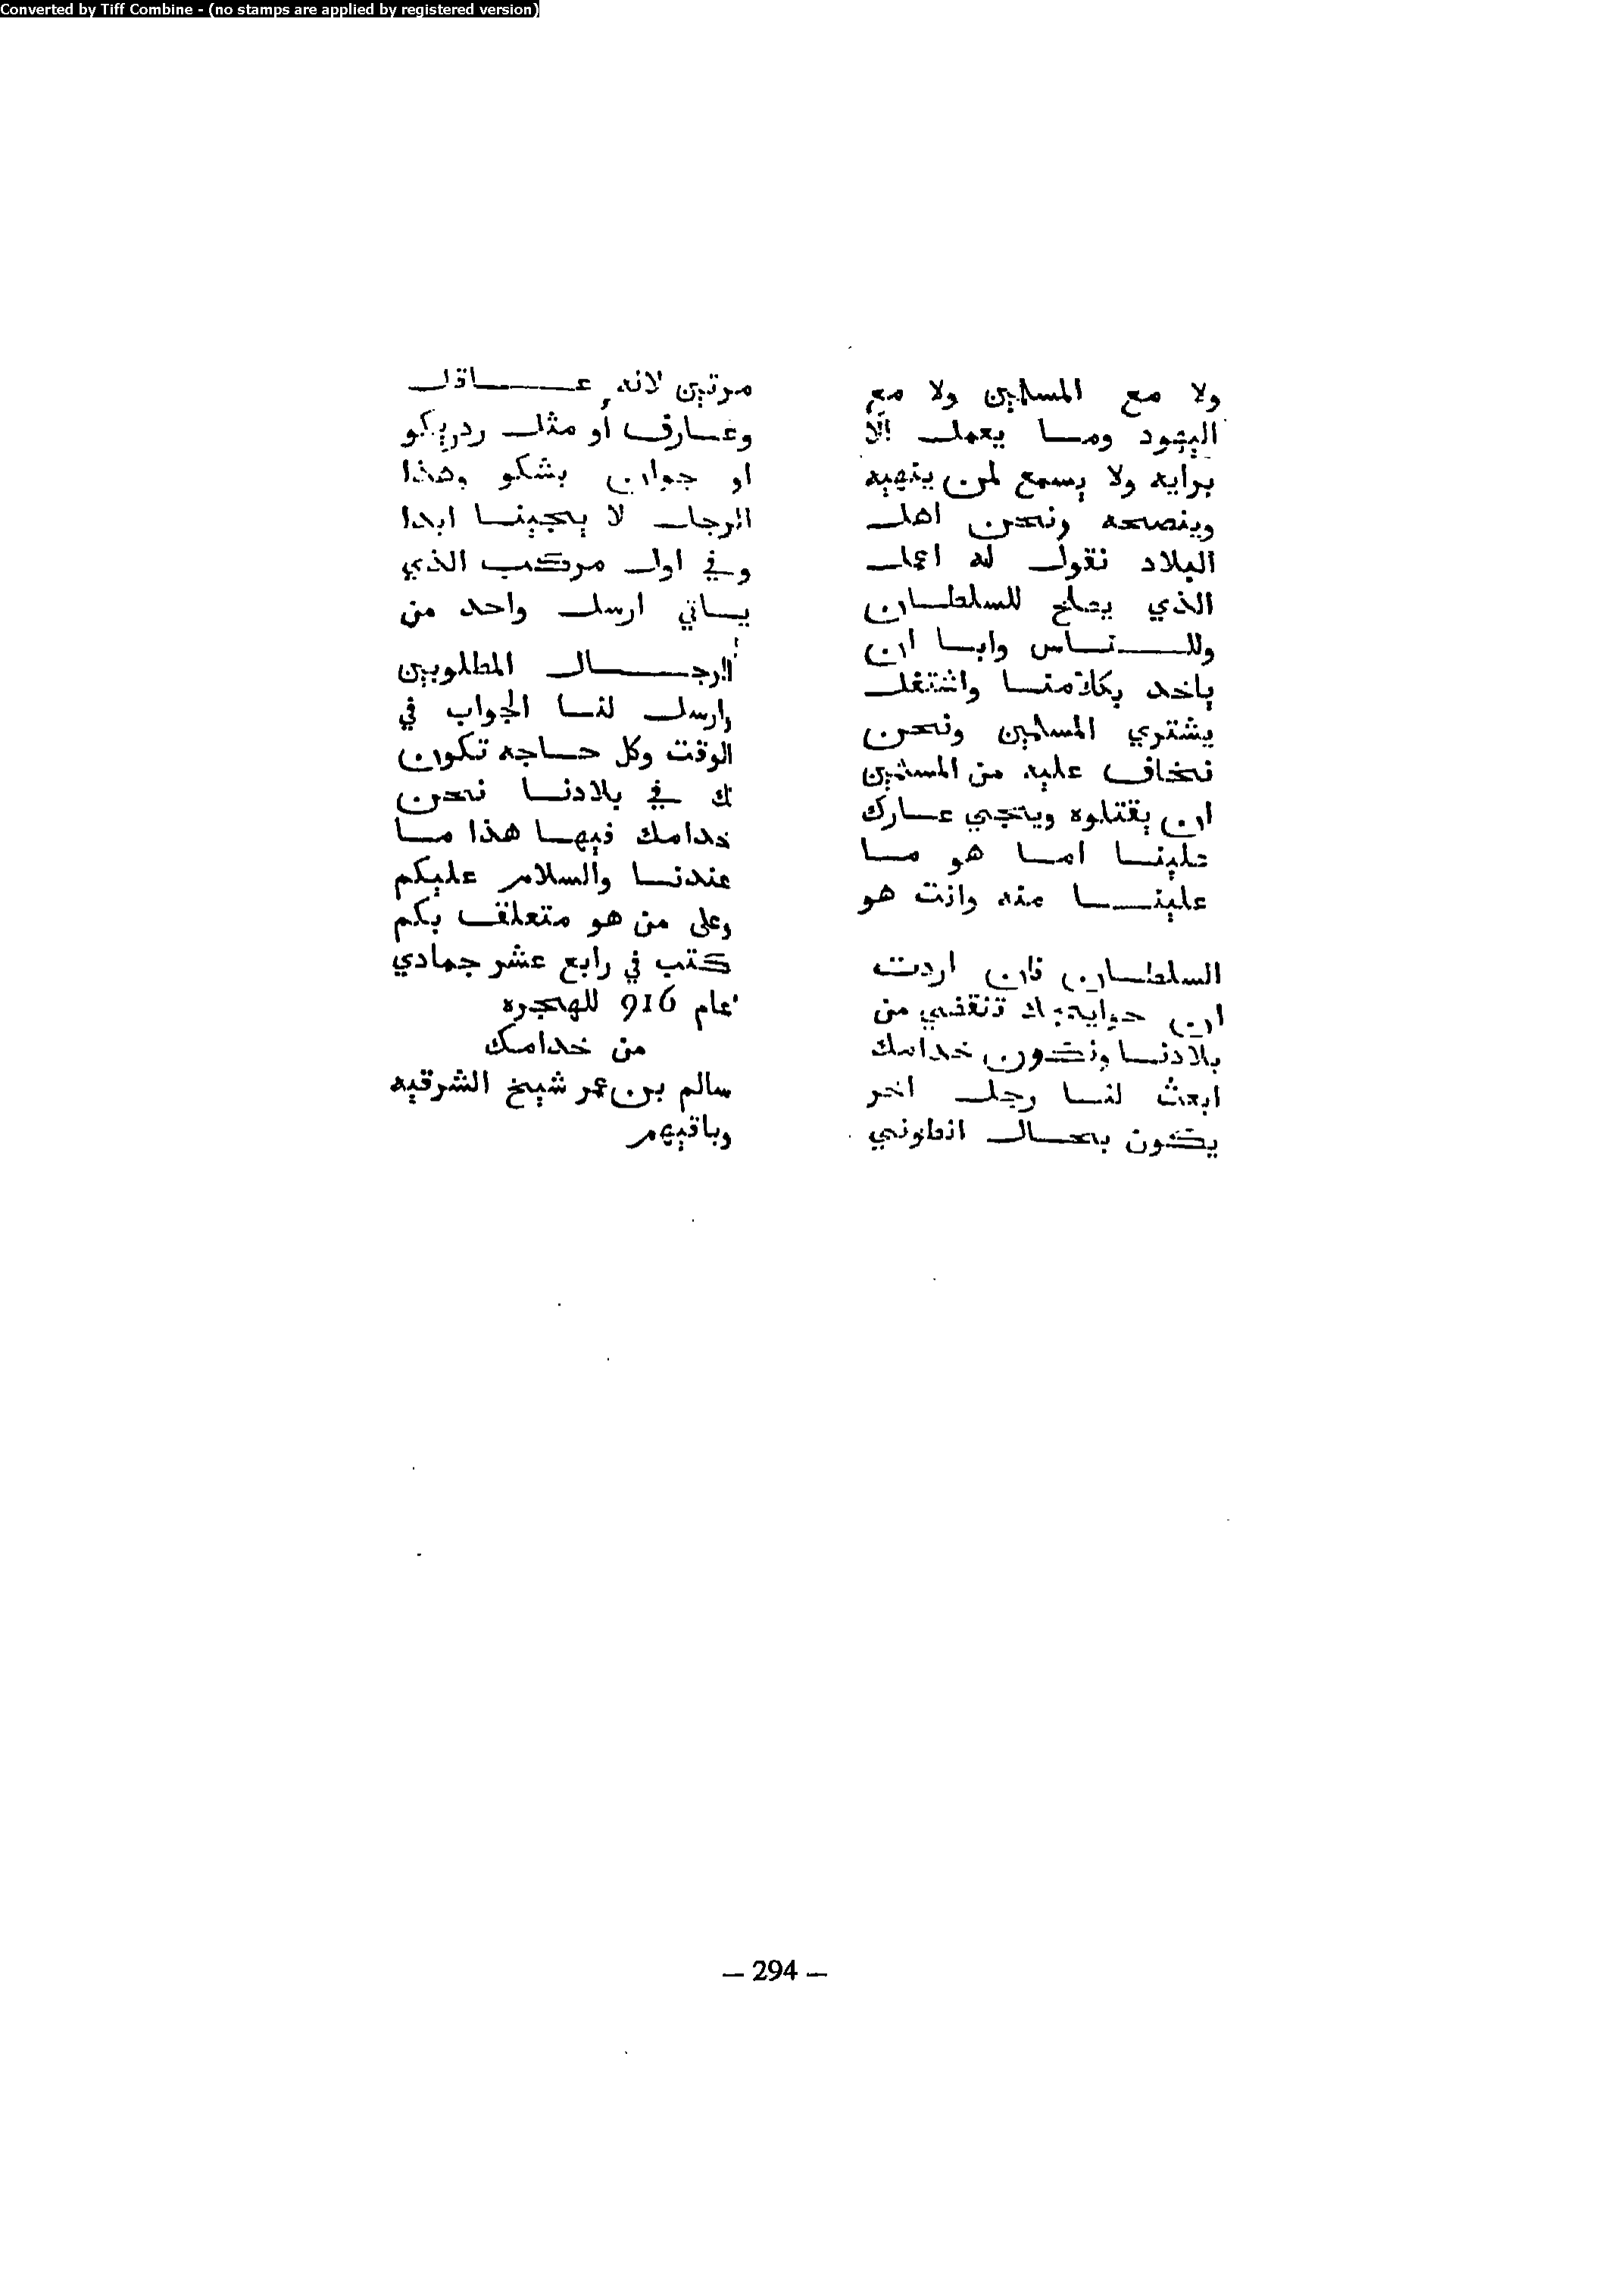 Converted by Tiff Combine - (no stamps are applied by registered version)
ولا مع المسلمين ولا مع
اليهود وما يعمل الا
برايه ولا يسمع لمن ينهيه
وينصحه ونحن اهل
البلاد نقول له اعمل
الذي يصلح للسلطان
وللناس وابا ان
ياخد بكلامنا واشتغل
يشتري المسلمين ونحن
نخاف عليه من المسلمين
ان يقتلوه ويتجي عارك
علينا اما هو ما
علينا منه وانت هو
السلطان فان اردت
ان حوايجك تنقضي من
بلادنا ونكون خدامك
ابعث لنا رجل اخر
يكون بحال انطوني
مرتين لانه عاقل
وعارف أو مثل ردريكو
او جوان بشكو وهذا
الرجل لا يجينا ابدا
وفي اول مركب الذي
ياتي ارسل واحد من
الرجال المطلوبين
وارسل لنا الجواب في
الوقت وكل حاجه تكون
لك في بلادنا نحن
خدامك فيها هذا ما
عندنا والسلام عليكم
وعلى من هو متعلق بكم
كتب في رابع عشر جمادي
عام 916 للهجره
من خدامك
سالم بن عمر شيخ الشرقيه
وباقيهم
– 294 –